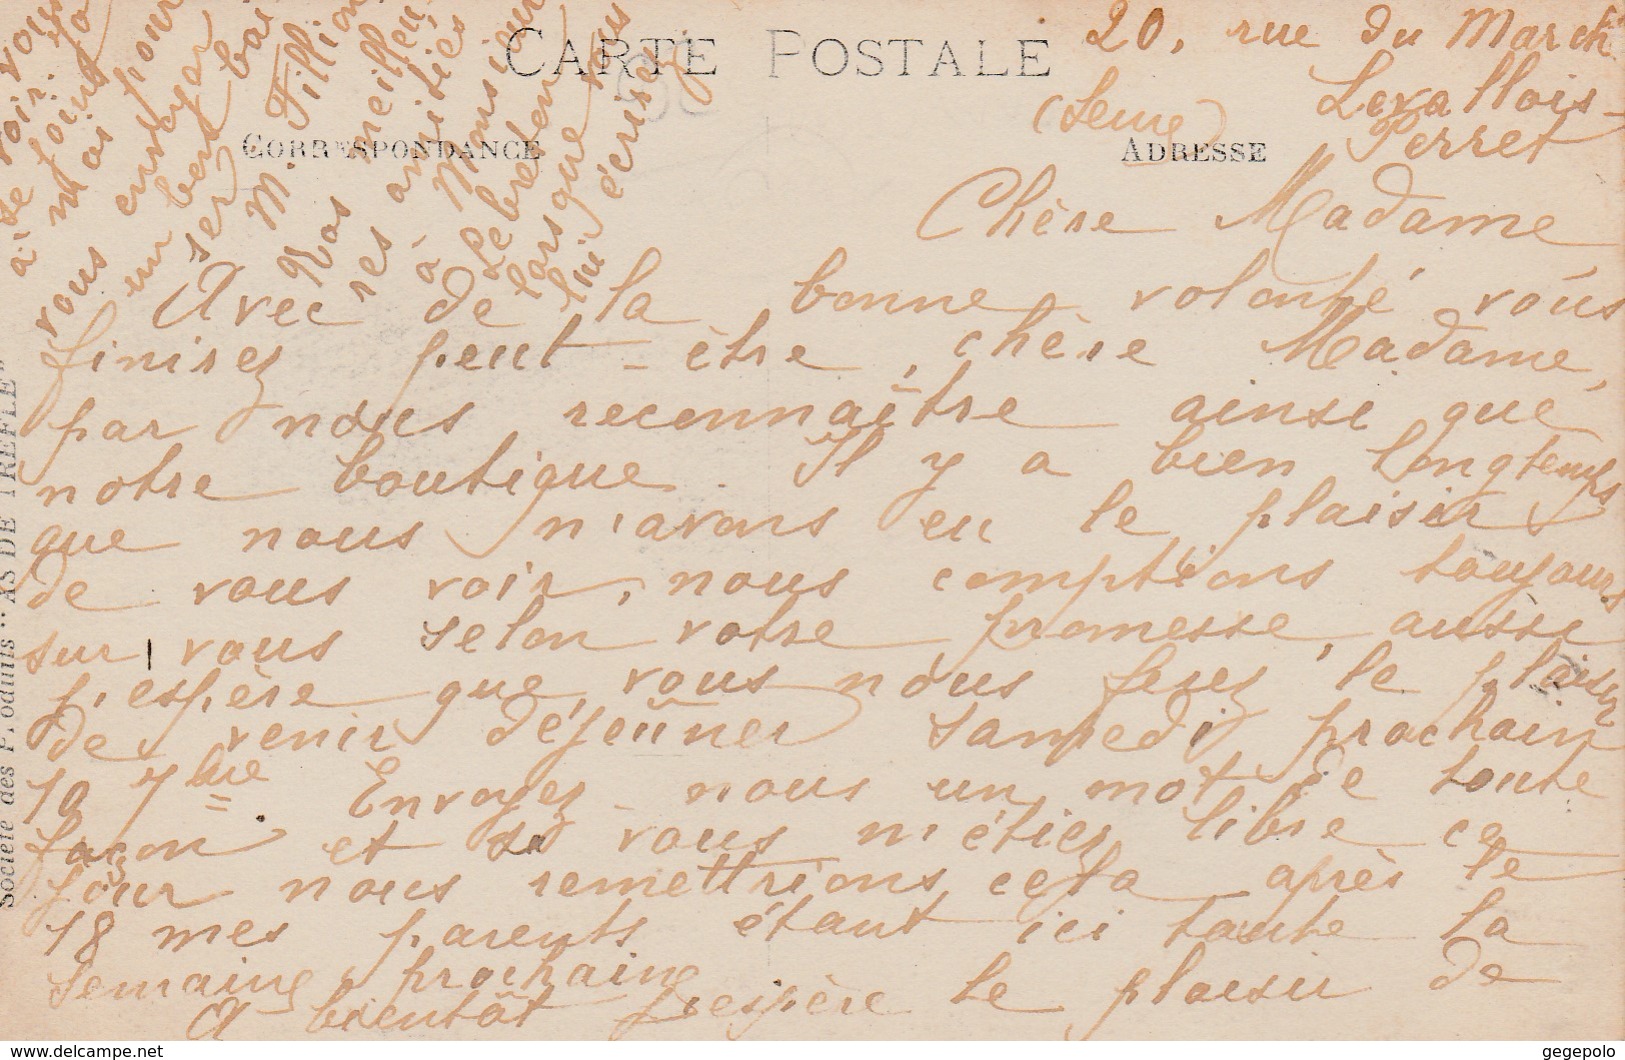 CARTE POSTALE
CORRESPONDANCE
ADRESSE
20, rue du March
Levallois-
Perret
(Seine)
Chère Madame
Avec de la bonne volonté vous
finirez peut-être, chère Madame,
par nous reconnaître ainsi que
notre boutique. Il y a bien longtemps
que nous n'avons eu le plaisir
de vous voir, nous comptions toujours
sur vous selon votre promesse, aussi
j'espère que vous nous ferez le plaisir
de venir déjeûner samedi prochain
10 7bre. Envoyez-nous un mot de toute
façon et si vous n'étiez libre ce
jour nous remettrions cela après le
18 mes parents étant ici toute la
semaine prochaine
A bientôt j'espère le plaisir de
vous
voir. Je
à moins
vous envoyer
un bon bai
ser
M. Fillion
Nos meilleu
res amitiés
à Monsieur
Lebreton
lorsque vous
lui écrirez
Société des Produits "AS DE TREFLE"
delcampe.net
gegepolo